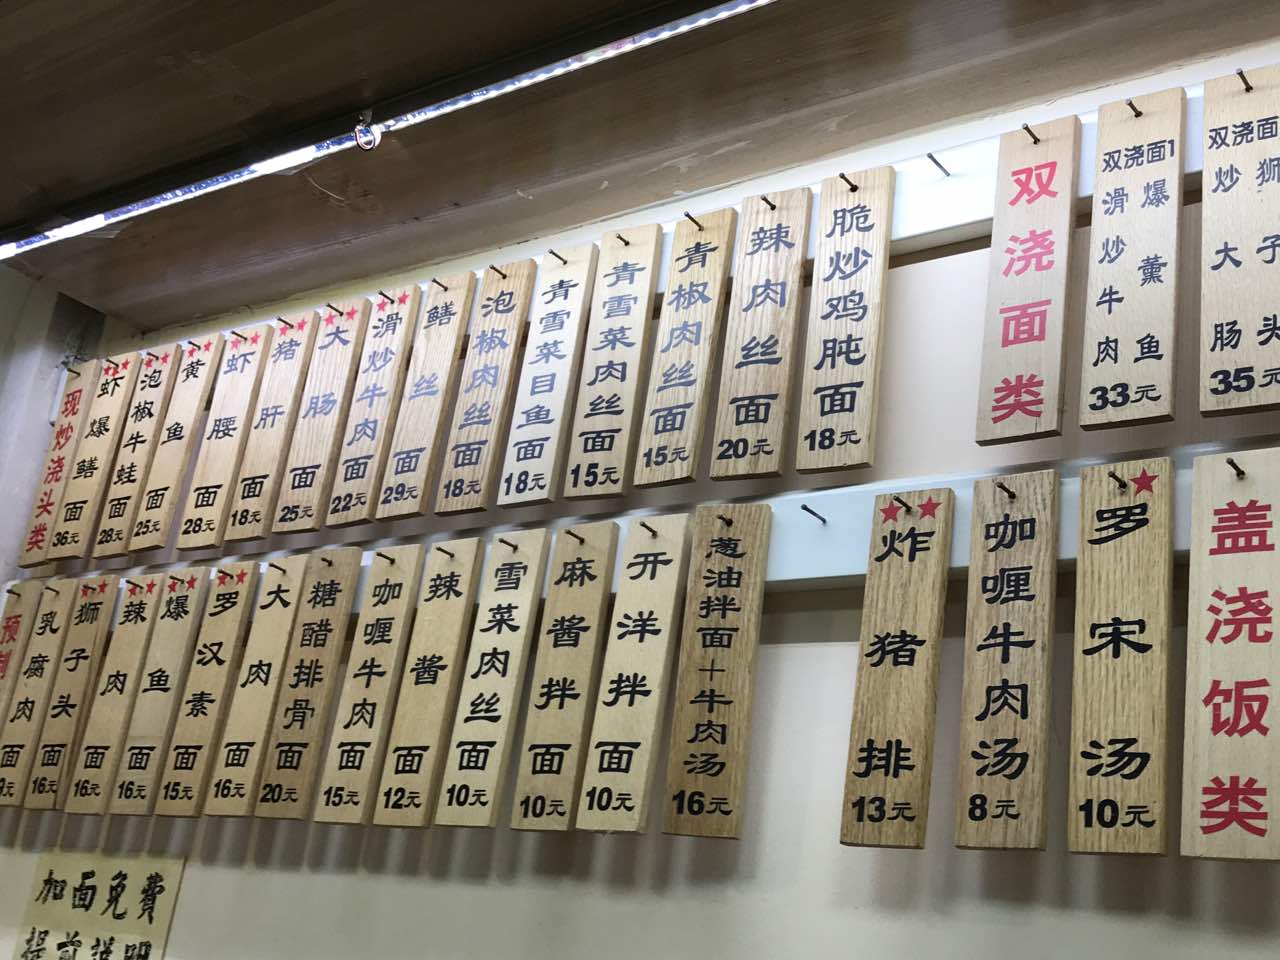 现炒浇头类
虾爆鳝面 36元
泡椒牛蛙面 28元
黄鱼面 25元
虾腰面 28元
猪肝面 18元
大肠面 25元
滑炒牛肉面 22元
鳝丝面 29元
泡椒肉丝面 18元
青雪菜目鱼面 18元
青雪菜肉丝面 15元
青椒肉丝面 15元
辣肉丝面 20元
脆炒鸡肫面 18元
双浇面类
双浇面1
滑炒牛肉
爆薰鱼
33元
双浇面
炒大肠
狮子头
35元
预制
乳腐肉面 16元
狮子头面 16元
辣肉面 16元
爆鱼面 15元
罗汉素面 16元
大肉面 20元
糖醋排骨面
咖喱牛肉面 15元
辣酱面 12元
雪菜肉丝面 10元
麻酱拌面 10元
开洋拌面 10元
葱油拌面+牛肉汤 16元
炸猪排 13元
咖喱牛肉汤 8元
罗宋汤 10元
盖浇饭类
加面免費
提前说明